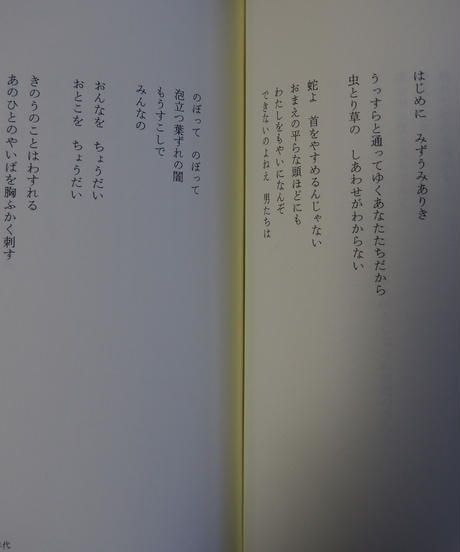 はじめに　みずうみありき
うっすらと通ってゆくあなたたちだから
虫とり草の　しあわせがわからない
蛇よ　首をやすめるんじゃない
おまえの平らな頭ほどにも
わたしをもやいになんぞ
できないのよねえ　男たちは
のぼって　のぼって
泡立つ葉ずれの闇
もうすこしで
みんなの
おんなを　ちょうだい
おとこを　ちょうだい
きのうのことはわすれる
あのひとのやいばを胸ふかく刺す
代